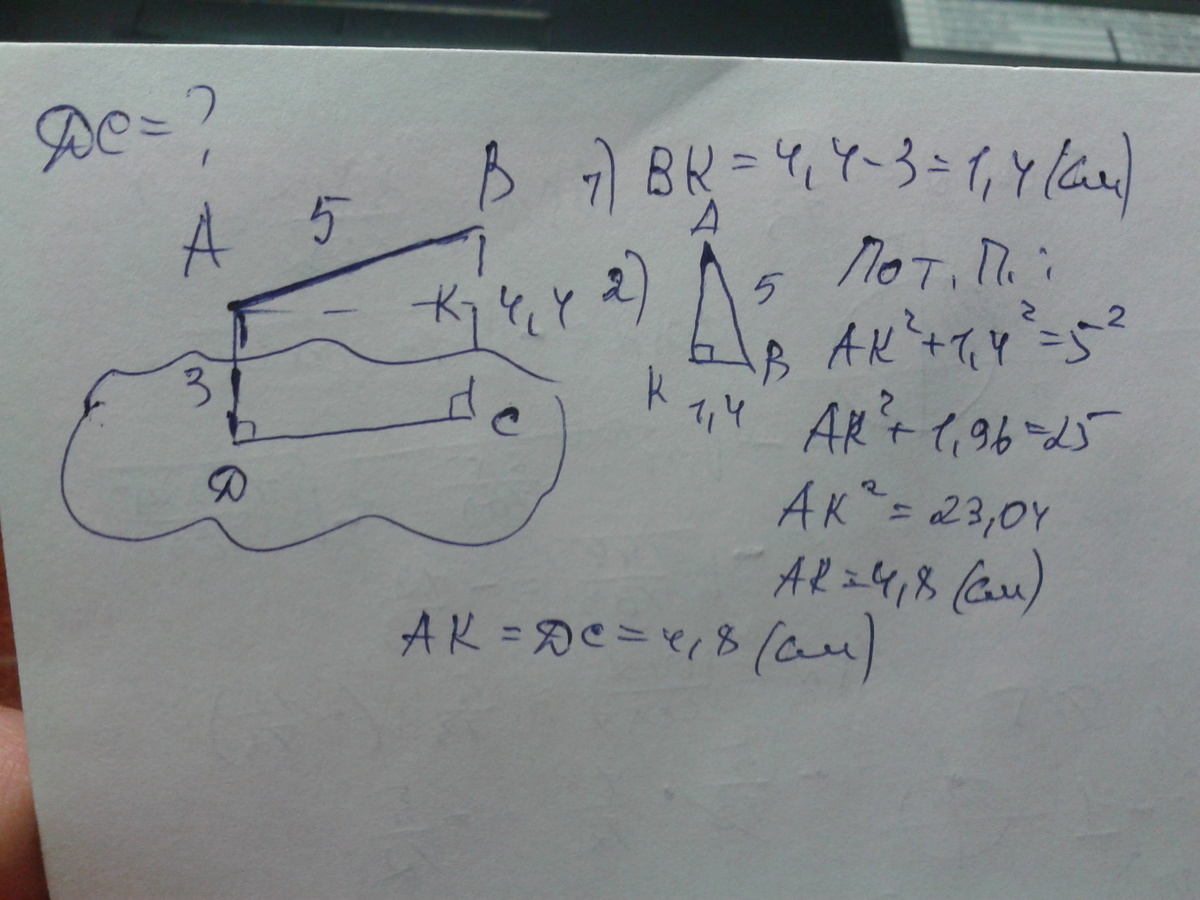 DC = ?
A
5
B
K
4,4
3
D
C
1) BK = 4,4-3 = 1,4 (см)
2)
A
5
K
B
1,4
По т. П. :
AK² + 1,4² = 5²
AK² + 1,96 = 25
AK² = 23,04
AK = 4,8 (см)
AK = DC = 4,8 (см)